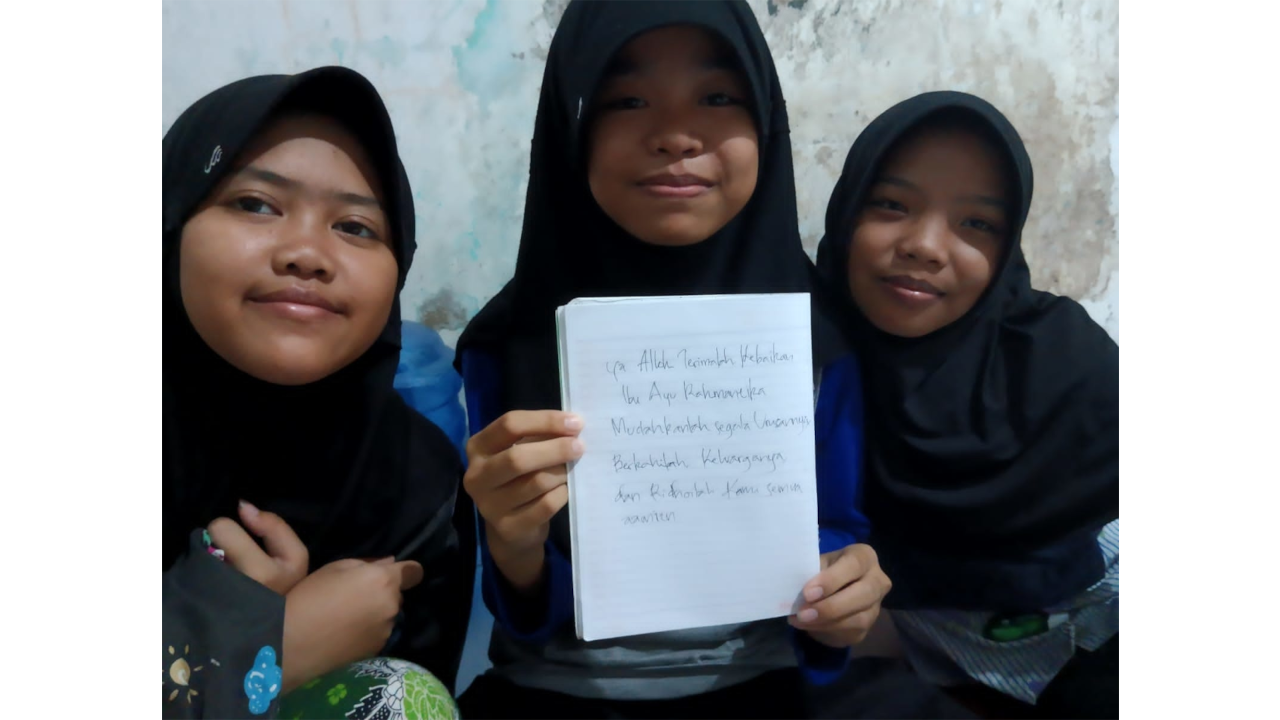 Ya Allah Terimalah Kebaikan
Ibu Ayu Rahmaneika
Mudahkanlah segala Urusannya
Berkahilah Keluarganya
dan Ridhoilah Kami semua